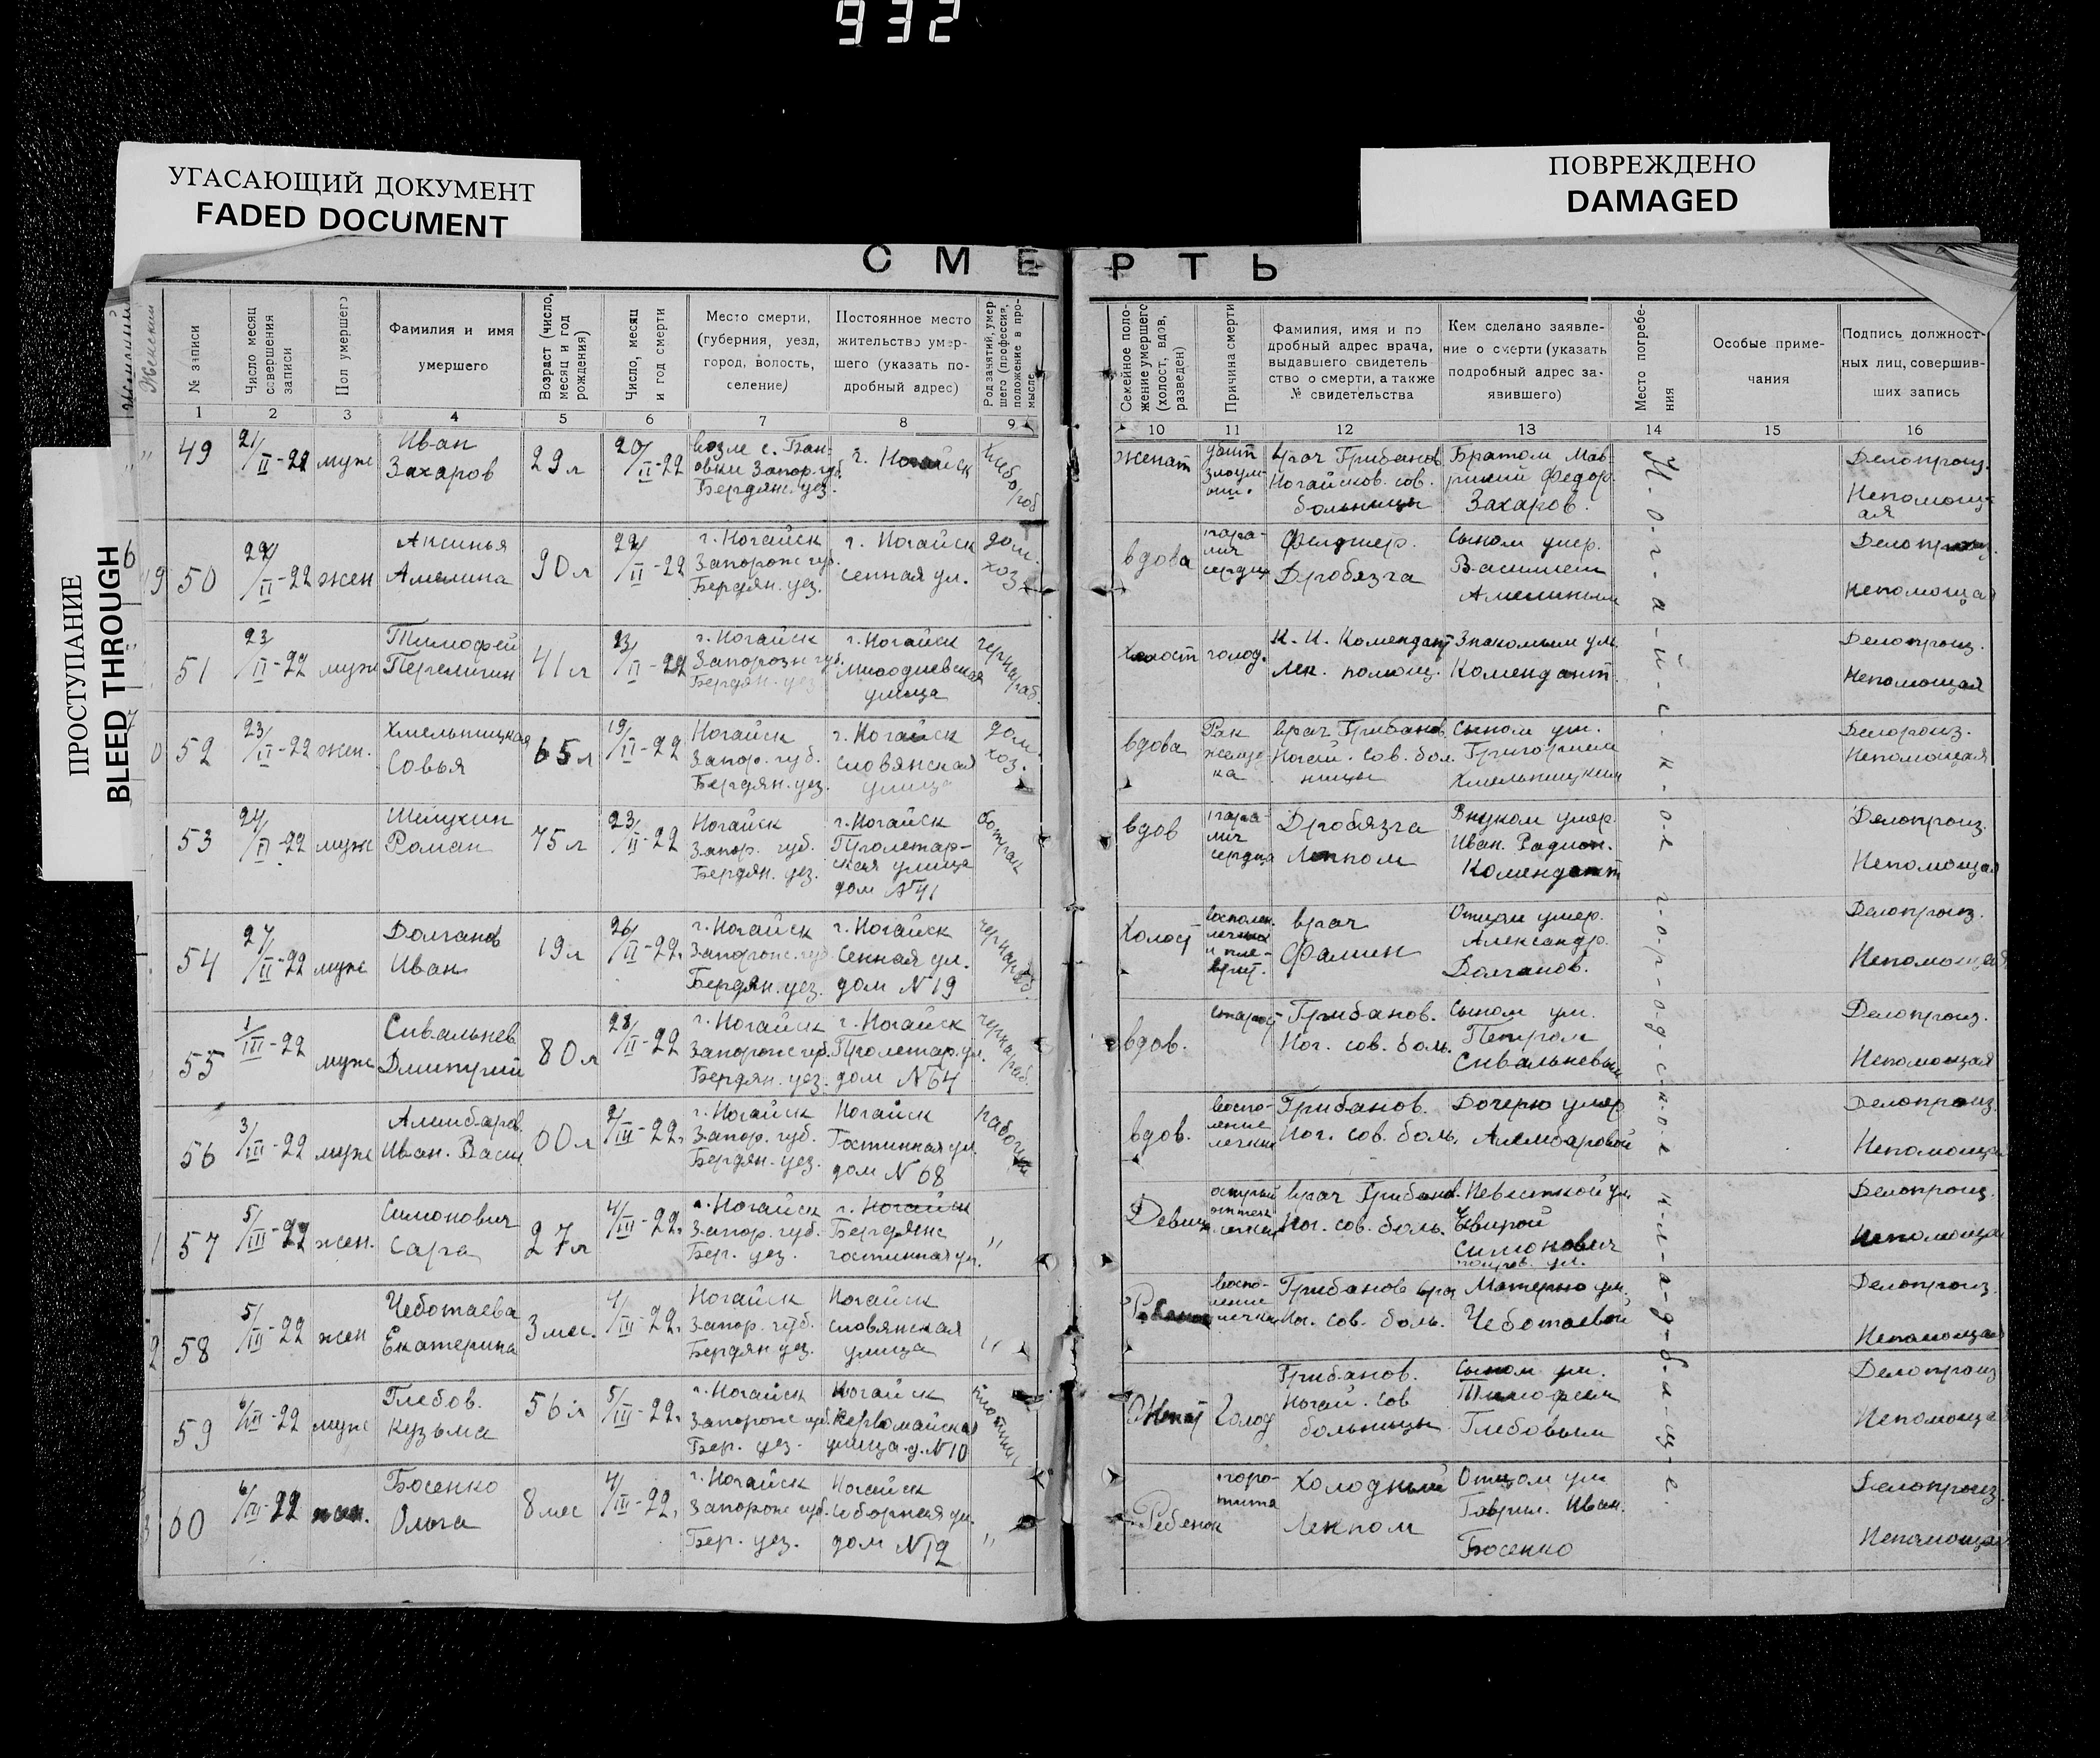 932
УГАСАЮЩИЙ ДОКУМЕНТ
FADED DOCUMENT
ПОВРЕЖДЕНО
DAMAGED
ПРОСТУПАНИЕ
BLEED THROUGH
СМЕРТЬ
№ записи
Число месяц
совершения
записи
Пол умершего
Фамилия и имя
умершего
Возраст (число,
месяц и год
рождения)
Число, месяц
и год смерти
Место смерти,
(губерния, уезд,
город, волость,
селение)
Постоянное место
жительство умер-
шего (указать по-
дробный адрес)
Род занятий, умер
шего (профессия,
положение в про-
мысле
Семейное поло-
жение умершего
(холост, вдов,
разведен)
Причина смерти
Фамилия, имя и по
дробный адрес врача,
выдавшего свидетель
ство о смерти, а также
№ свидетельства
Кем сделано заявле-
ние о смерти (указать
подробный адрес за-
явившего)
Место погребе-
ния
Особые приме-
чания
Подпись должност-
ных лиц, совершив-
ших запись
1 2 3 4 5 6 7 8 9 10 11 12 13 14 15 16
49
21/II-22
муж
Иван
Захаров
29 л
20/II-22
возле с. Бан-
овки Запор. губ.
Бердян. уез.
г. Ногайск
хлебороб
женат
врач Грибанов
Ногайсков. сов.
больницы
Братом Мав
рикий Федор.
Захаров.
Делопроиз.
Непомощ-
ая
50
22/II-22
жен
Аксинья
Амелина
90 л
22/II-22
г. Ногайск
Запорож губ.
Бердян. уез.
г. Ногайск
сенная ул.
дом.
хоз.
вдова
пара-
лич
сердца
Фелдшер.
Дробязга
Сыном умер.
Василием
Амелиным
Делопроиз.
Непомощая
51
23/II-22
муж
Тимофей
Перелигин
41 л
23/II-22
г. Ногайск
Запорож губ.
Бердян. уез
г. Ногайск
улица
чернораб.
Холост
голод.
К. И. Комендант
Лек. помощ.
Знакомым ум.
Комендант.
Делопроиз.
Непомощая
52
23/II-22
жен.
Хмельницкая
Совья
65 л
19/II-22
Ногайск
Запор. губ.
Бердян. уез.
г. Ногайск
словянская
улица
дом.
хоз.
вдова
Рак
желуд-
ка
врач Грибанов
Ногай. сов. бол.
ницы
Сыном ум.
Григорием
Хмельницким
Делопроиз.
Непомощая
53
24/II-22
муж
Шелухин
Роман
75 л
23/II-22
Ногайск
Запор. губ.
Бердян. уез.
г. Ногайск
Пролетар-
ская улица
дом №41
ботрак
вдов
пара-
лич
сердца
Дробязга
Лекпом
Внуком умер.
Иван. Радион.
Комендант
Делопроиз.
Непомощая
54
27/II-22
муж
Долганов
Иван
19 л
26/II-22.
г. Ногайск
Запорож. губ
Бердян. уез.
г. Ногайск
Сенная ул.
дом №19
чернораб.
Холост
воспален.
легких
и пле-
врит.
врач
Фамин
Отцом умер.
Александр.
Долганов.
Делопроиз.
Непомощая
55
1/III-22
муж
Сивальнев
Дмитрий
80 л
28/II-22
г. Ногайск
Запорож губ.
Бердян. уез.
г. Ногайск
Пролетар. ул.
дом №64
чернораб.
вдов.
старост
Грибанов.
Ног. сов. боль.
Сыном ум.
Петром
Сивальневым
Делопроиз.
Непомощая
56
3/III-22
муж
Алимбаров
Иван. Васил
60 л
2/III-22.
г. Ногайск
Запор. губ.
Бердян. уез.
Ногайск
Гостинная ул.
дом №68
рабочий
вдов.
воспо-
ление
легких
Грибанов.
Ног. сов. боль.
Дочерю умер
Алимбаровой
Делопроиз.
Непомощая
57
5/III-22
жен.
Симонович
Сара
27 л
4/III-22.
г. Ногайск
Запор. губ.
Бер. уез.
г. Ногайск
Бердянс
гостинная ул.
"
Девица
врач Грибанов.
Ног. сов. боль.
Невесткой ум.
Симонович
Делопроиз.
Непомощая
58
5/III-22
жен
Чеботаева
Екатерина
3 мес.
4/III-22.
Ногайск
Запор. губ.
Бердян уез.
Ногайск
словянская
улица
"
воспо-
ление
легких
Грибанов врач
Ног. сов. боль.
Матерью ум.
Чеботаевой
Делопроиз.
Непомощая
59
6/III-22
муж
Глебов.
Кузьма
56 л
5/III-22.
г. Ногайск
Запорож губ.
Бер. уез.
Ногайск
Первомайская
улица д. №10
плотник
Женат
Голод
Грибанов.
Ногай. сов
больницы
Сыном ум.
Тимофеем
Глебовым
Делопроиз
Непомощая
60
6/III-22
жен.
Босенко
Ольга
8 мес
4/III-22.
г. Ногайск
Запорож губ.
Бер. уез.
Ногайск
Соборная ул.
дом №12
"
Ребенок
Холодный
Лекпом
Отцом ум
Гаврил. Иван.
Босенко
Делопроиз.
Непомощая
Н-о-г-а-й-с-к-о-е г-о-р-о-д-с-к-о-е к-л-а-д-б-и-щ-е.